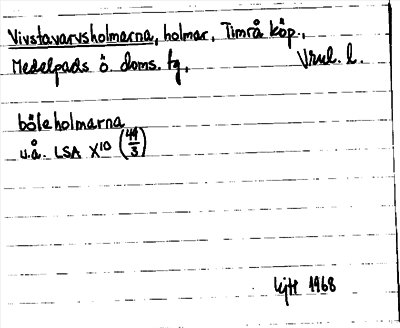 Vivstavarvsholmarna, holmar, Timrå köp.,
Medelpads ö. doms. tg, Vnrl. l.
böleholmarna
u.å. LSA X10 (44/3)
1968